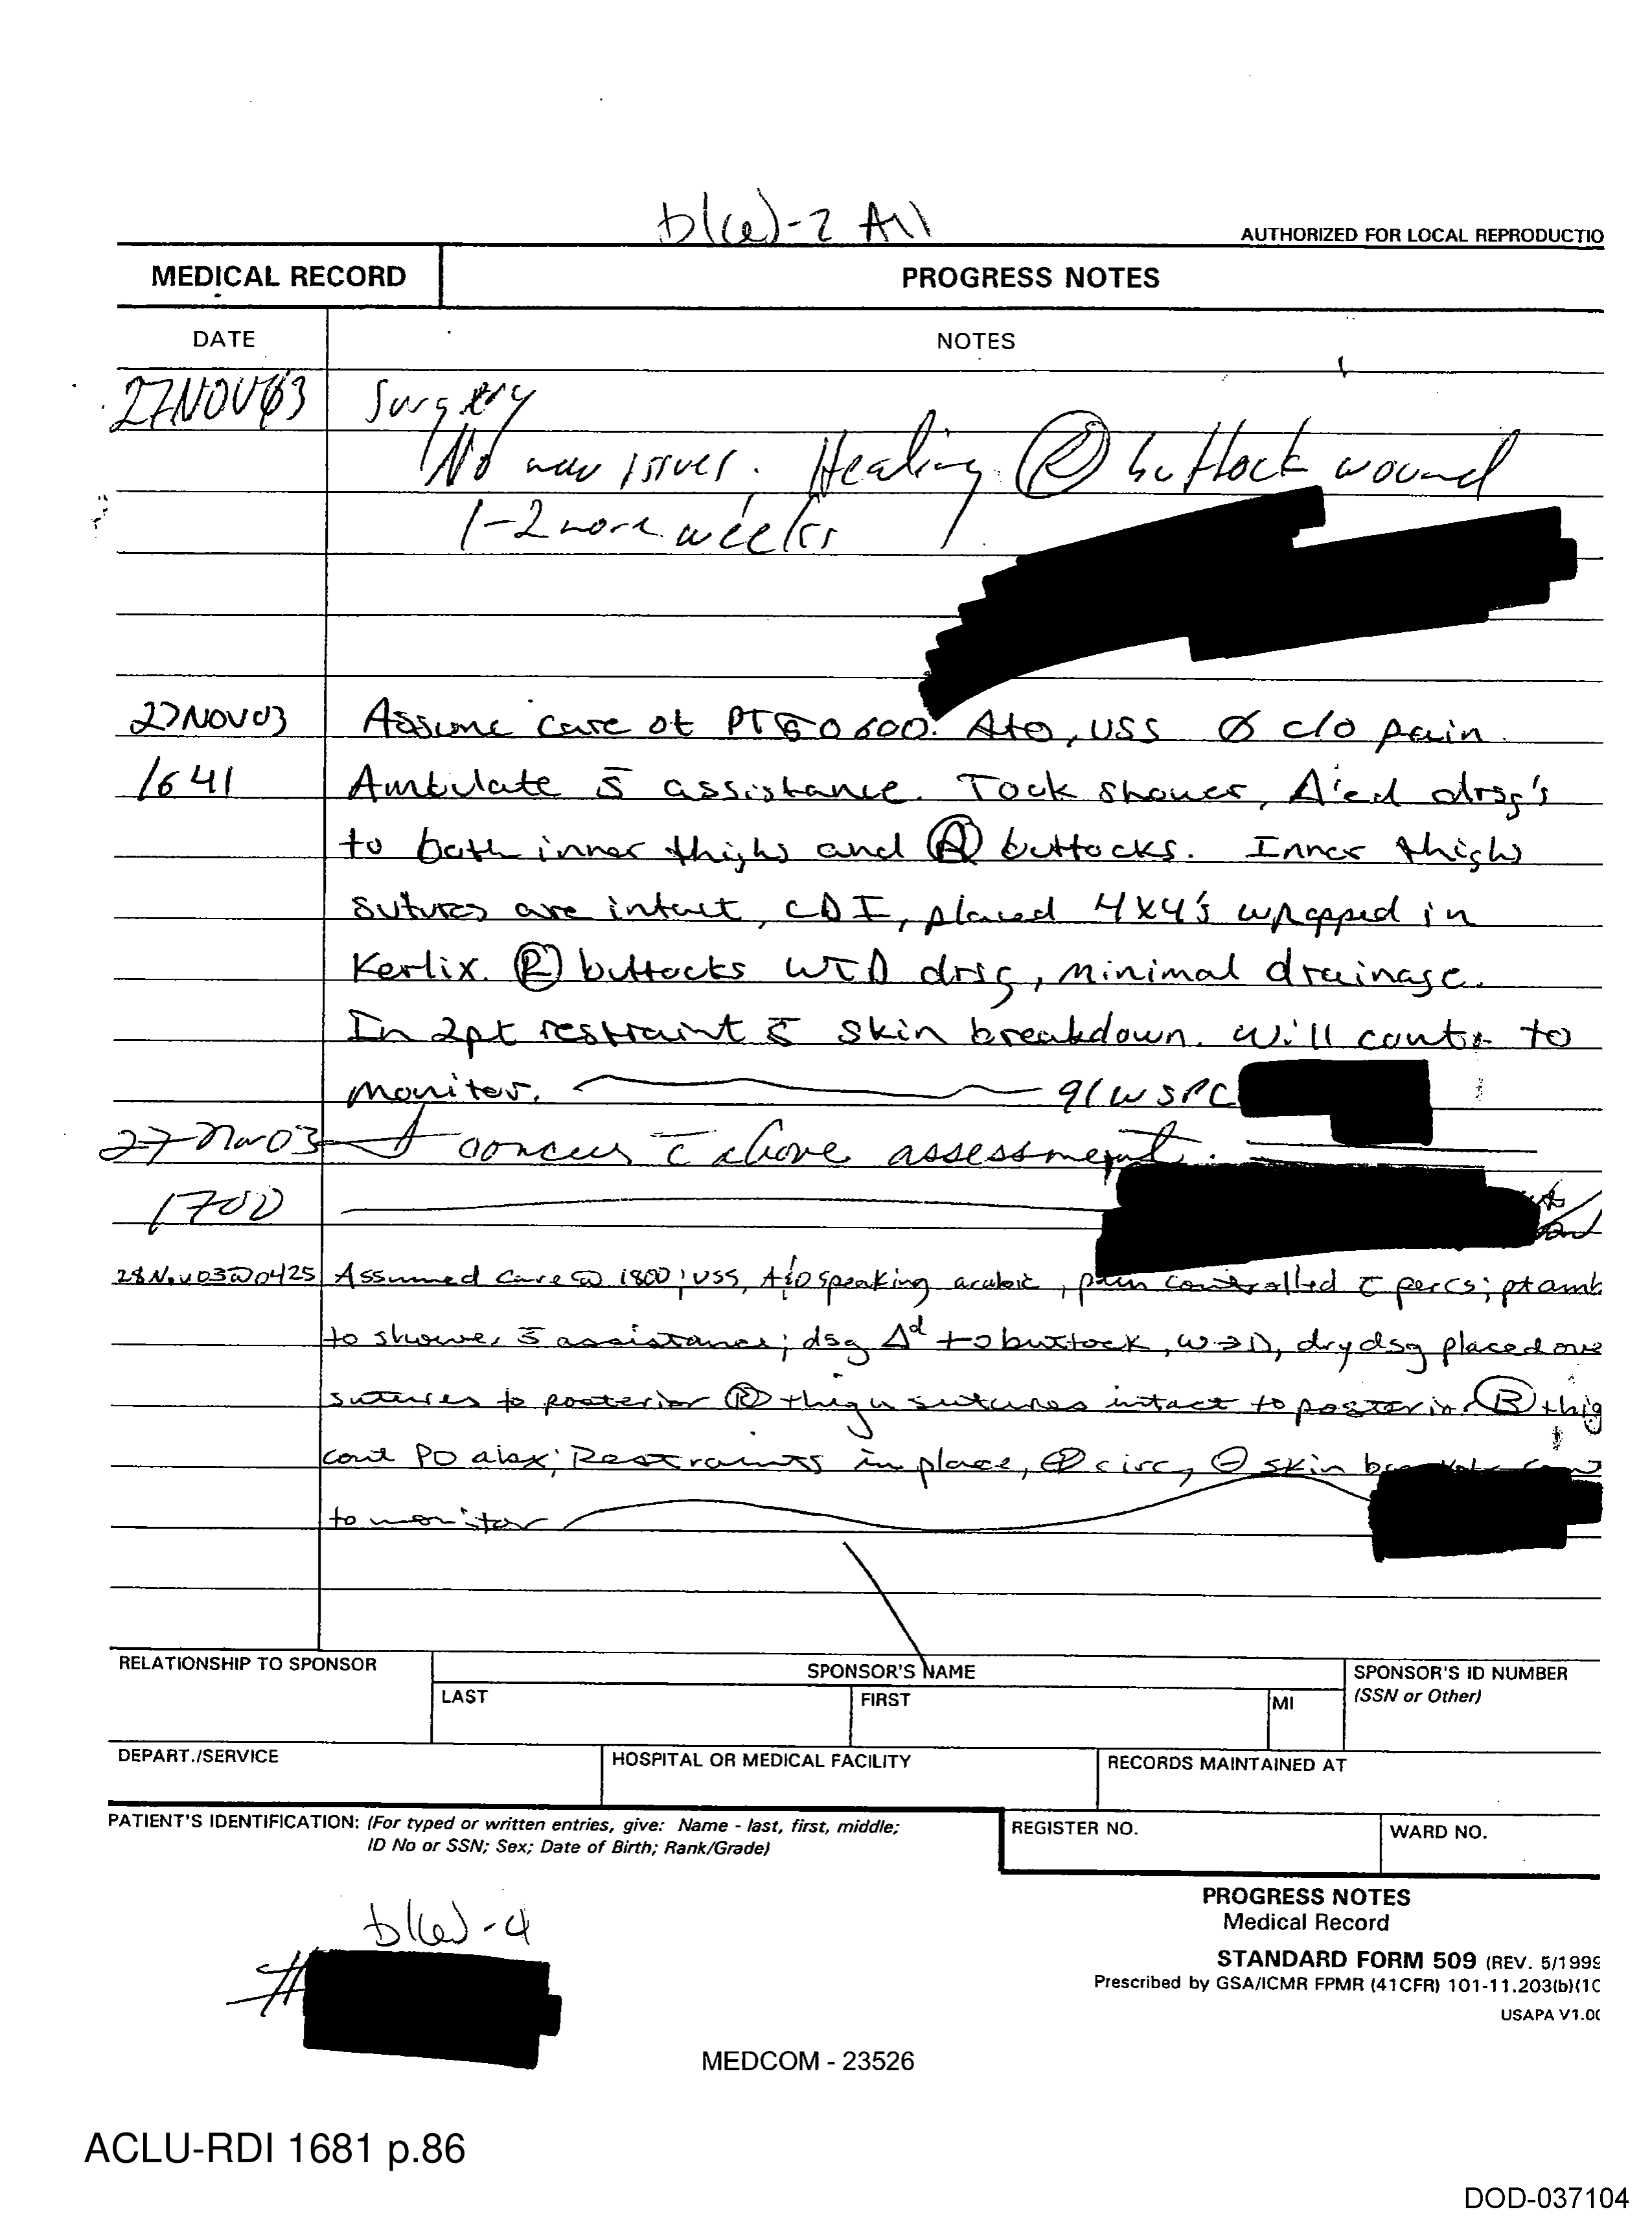 b(6)-2 All
AUTHORIZED FOR LOCAL REPRODUCTIO
MEDICAL RECORD
PROGRESS NOTES
DATE
NOTES
27NOV03 Surgery
No new issues. Healing Ⓡ buttock wound
1-2 more weeks
27NOV03 Assume care of PT @ 0600. A+O, VSS Ø c/o pain.
1641 Ambulate s̄ assistance. Took shower, Δ'ed drsg's
to both inner thighs and Ⓡ buttocks. Inner thighs
sutures are intact, CDI, placed 4x4's wrapped in
Kerlix. Ⓡ buttocks WTD drsg, minimal drainage.
In 2pt restraint s̄ skin breakdown. Will cont to
monitor. 91WSPC
27 Nov 03 I concur c̄ above assessment.
1700
28Nov03@0425 Assumed care @ 1800; VSS, A&O speaking arabic, pain controlled c̄ percs; pt amb
to shower s̄ assistance; dsg Δd to buttock, W→D, dry dsg placed ove
sutures to posterior Ⓡ thigh sutures intact to posterior Ⓑ thig
cont PO Restraints in place, ⊕ circ, ⊖ skin
to monitor
RELATIONSHIP TO SPONSOR
SPONSOR'S NAME
SPONSOR'S ID NUMBER
(SSN or Other)
LAST
FIRST
MI
DEPART./SERVICE
HOSPITAL OR MEDICAL FACILITY
RECORDS MAINTAINED AT
PATIENT'S IDENTIFICATION: (For typed or written entries, give: Name - last, first, middle;
ID No or SSN; Sex; Date of Birth; Rank/Grade)
REGISTER NO.
WARD NO.
PROGRESS NOTES
Medical Record
STANDARD FORM 509 (REV. 5/1999
Prescribed by GSA/ICMR FPMR (41CFR) 101-11.203(b)(10
USAPA V1.00
b(6)-4
#
MEDCOM - 23526
ACLU-RDI 1681 p.86
DOD-037104